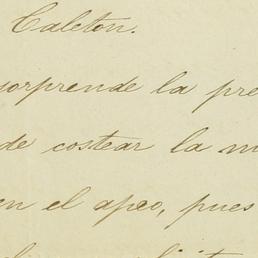 Caleton.
sorprende la pre
de costear la m
en el apeo, pues